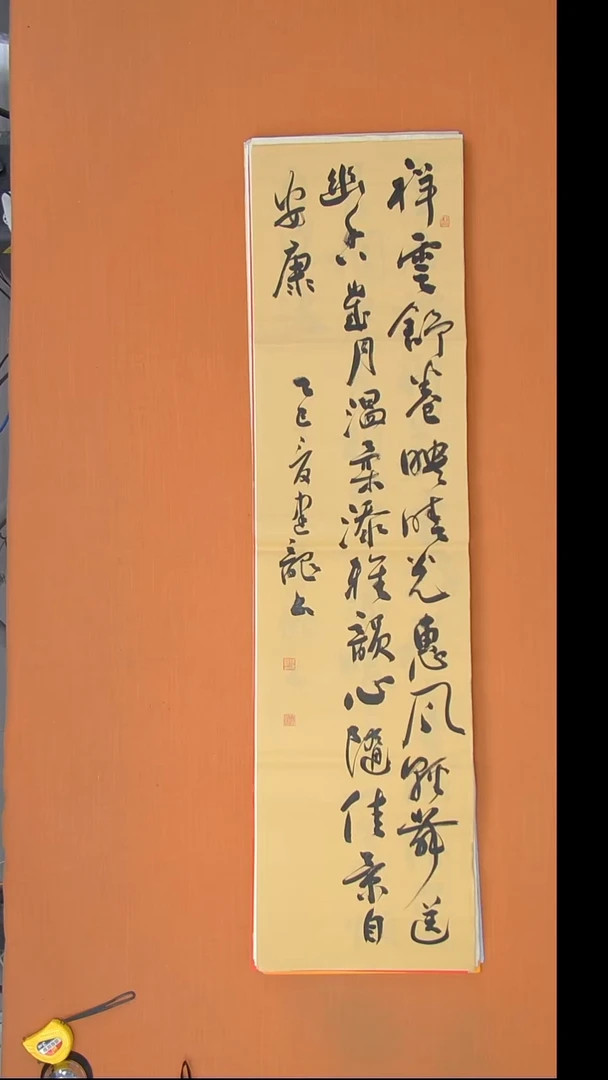 祥雲舒卷映晴光惠風輕舞送
幽香歲月溫柔添雅韻心隨佳景自
安康
乙巳夏建龍书